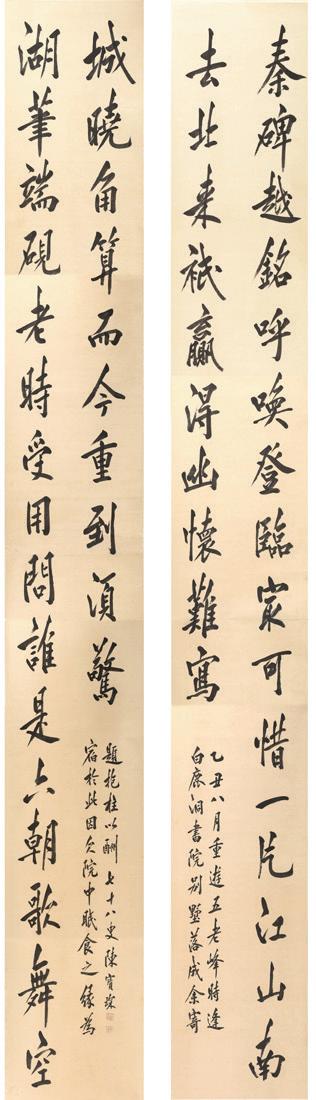 秦碑越銘呼喚登臨㝡可惜一片江山南
去北来祇贏得幽懷難寫
乙丑八月重遊五老峰時逢
白鹿洞書院别墅落成余寄
湖筆端硯老時受用問誰是六朝歌舞空
城曉角算而今重到須驚
宿於此因欠院中眠食之緣為
題抱柱以酬 七十八叟陳寶琛